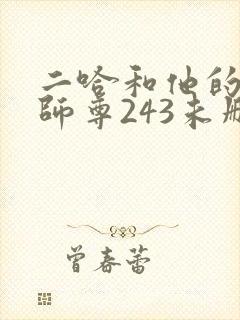 二哈和他的
師尊243未删
曾春蕾